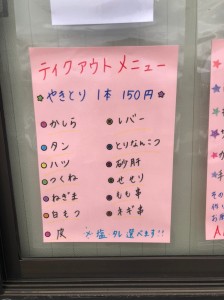 テイクアウトメニュー
やきとり 1本 150円
かしら
レバー
タン
とりなんこつ
ハツ
砂肝
つくね
せせり
ねぎま
もも串
白もつ
ネギ串
皮
※塩 タレ 選べます!!